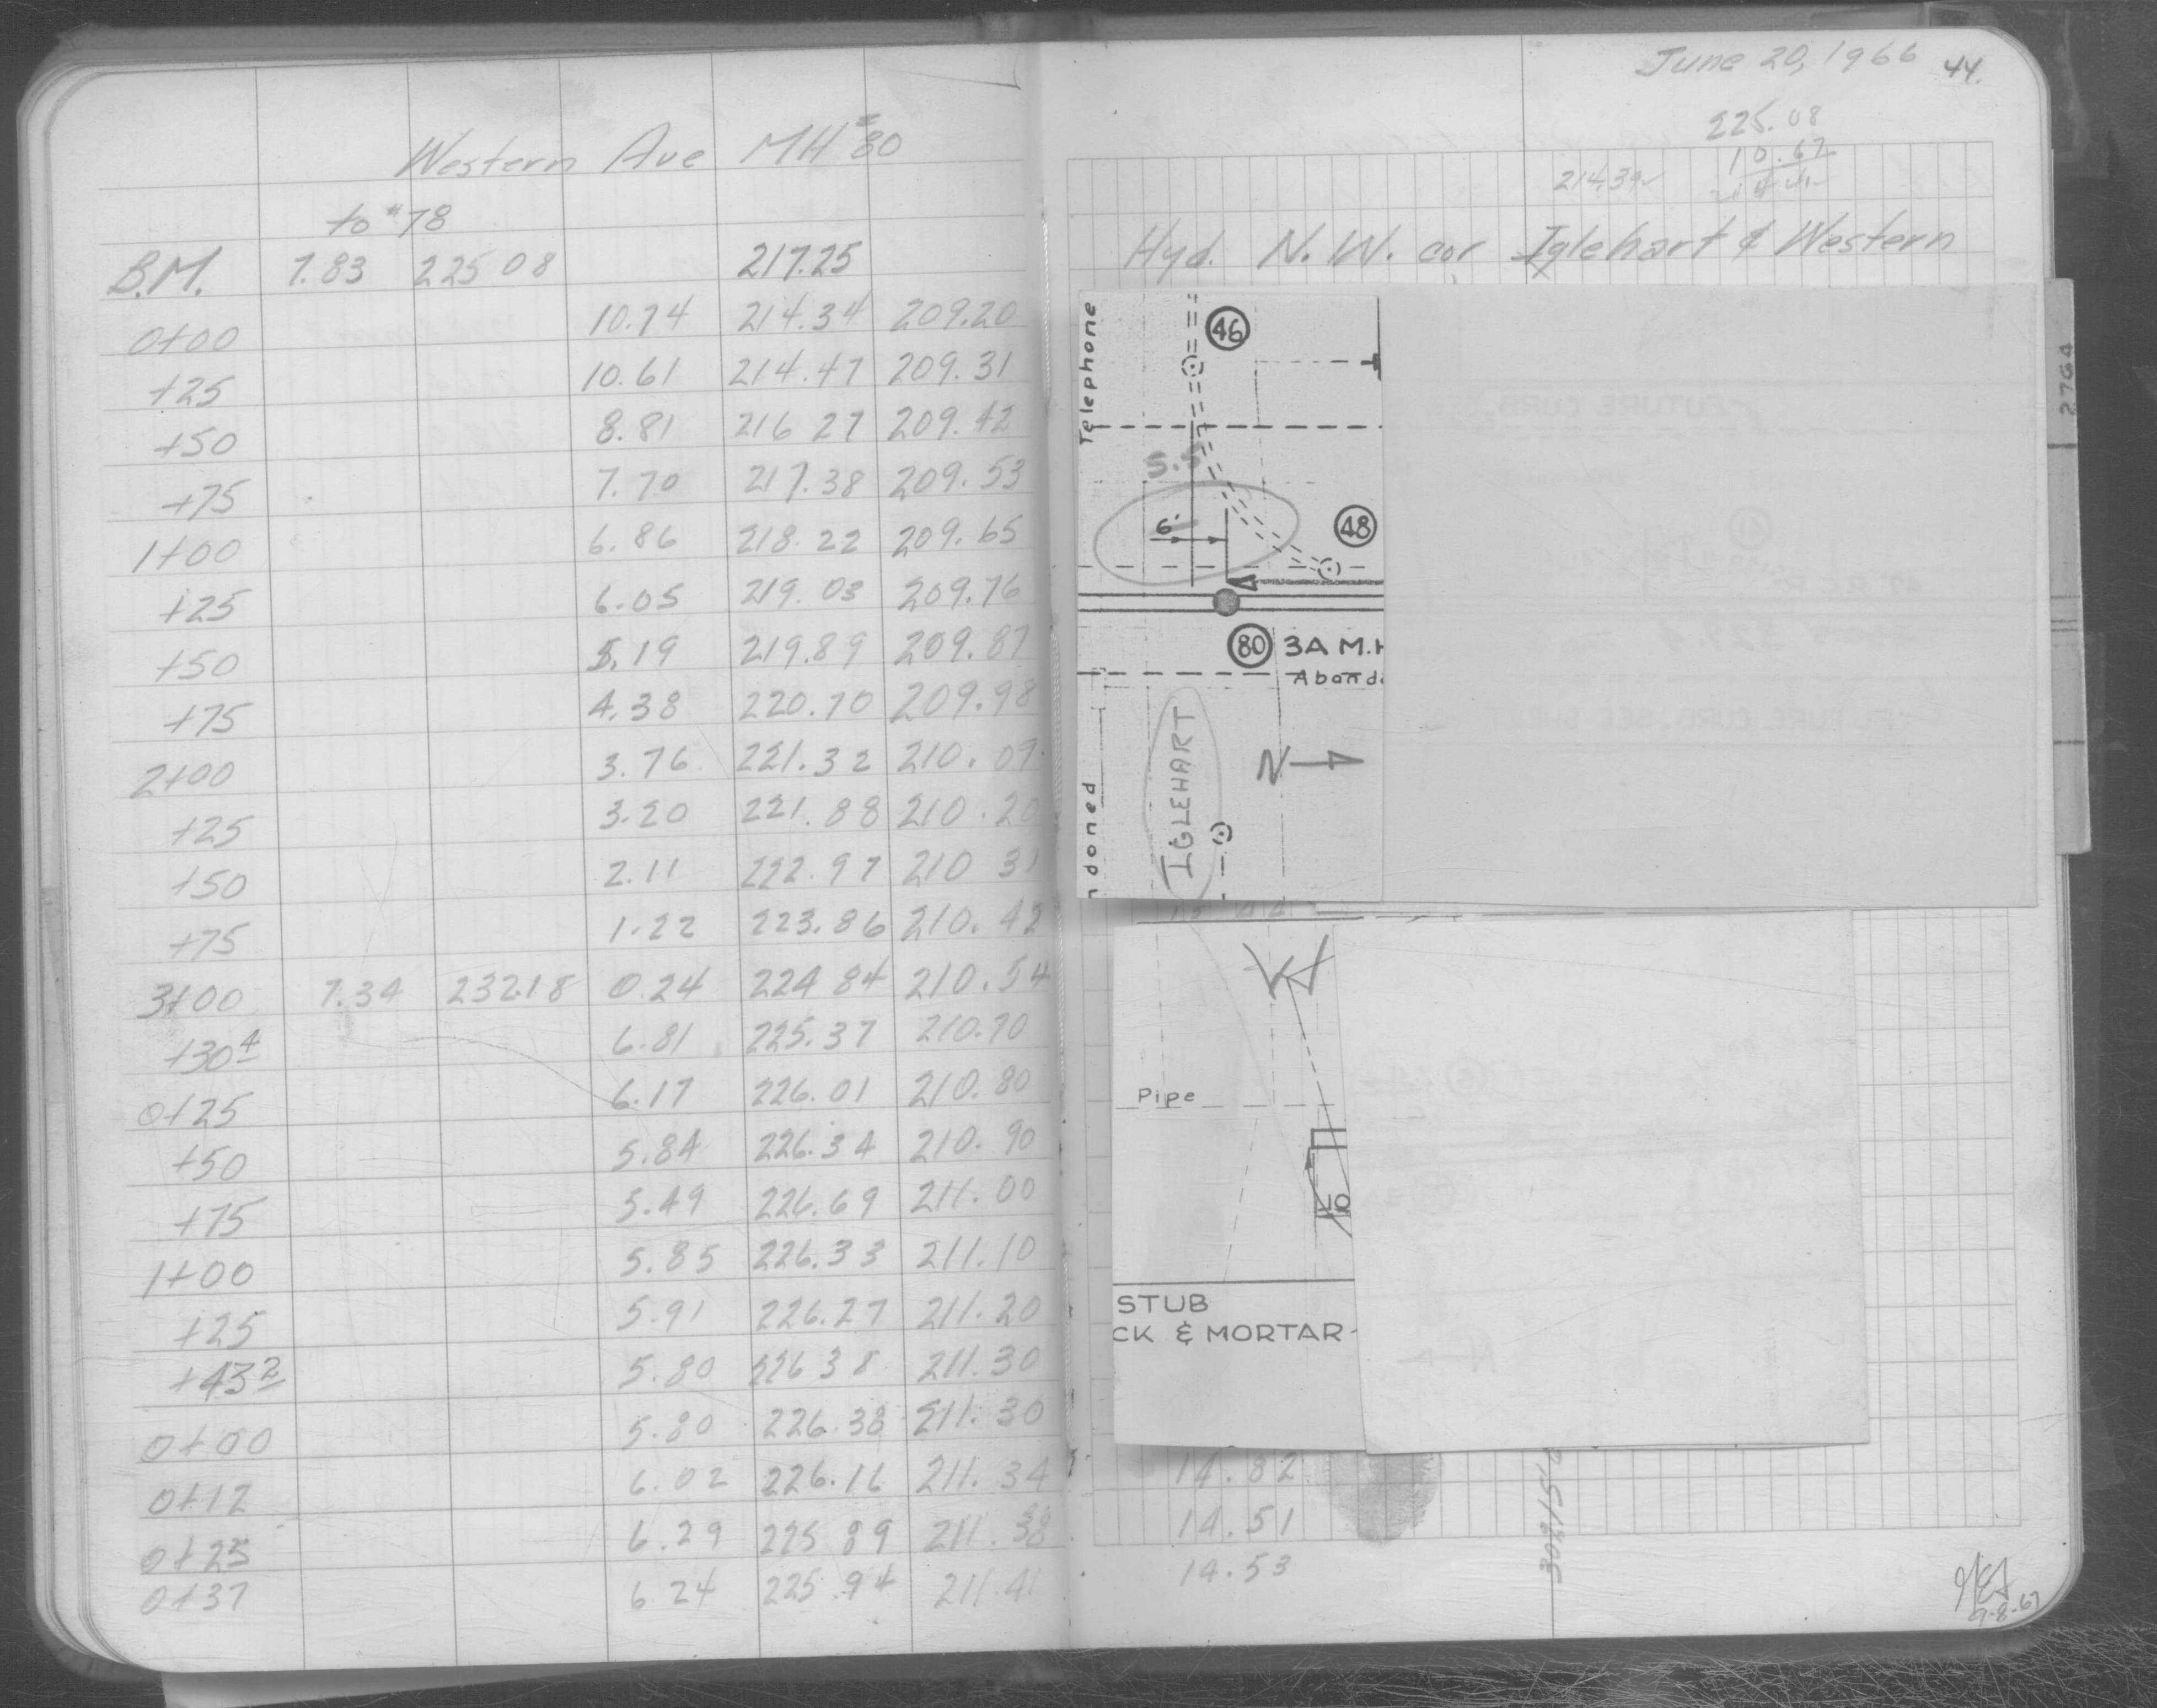 Western Ave MH #80
to #78
B.M. 7.83 225 08 217.25
0+00 10.74 214.34 209.20
+25 10.61 214.47 209.31
+50 8.81 216 27 209.42
+75 7.70 217.38 209.53
1+00 6.86 218.22 209.65
+25 6.05 219.03 209.76
+50 5.19 219.89 209.87
+75 4.38 220.70 209.98
2+00 3.76 221.32 210.09
+25 3.20 221.88 210.20
+50 2.11 222.97 210 31
+75 1.22 223.86 210.42
3+00 7.34 232.18 0.24 224 84 210.54
+30 4 6.81 225.37 210.70
0+25 6.17 226.01 210.80
+50 5.84 226.34 210.90
+75 5.49 226.69 211.00
1+00 5.85 226.33 211.10
+25 5.91 226.27 211.20
+43 2 5.80 226 38 211.30
0+00 5.80 226.38 211.30
0+12 6.02 226.16 211.34
0+25 6.29 225 89 211.38
0+37 6.24 225.94 211.41
June 20, 1966 44.
225.08
10.67
214.39
214.41
Hyd. N.W. cor Iglehart & Western
Telephone
46
S.S
6'
48
80 3A M.H
Aband
IGLEHART
N
ndoned
Pipe
10
STUB
CK & MORTAR
14.82
14.51
14.53
9-8-67
2764